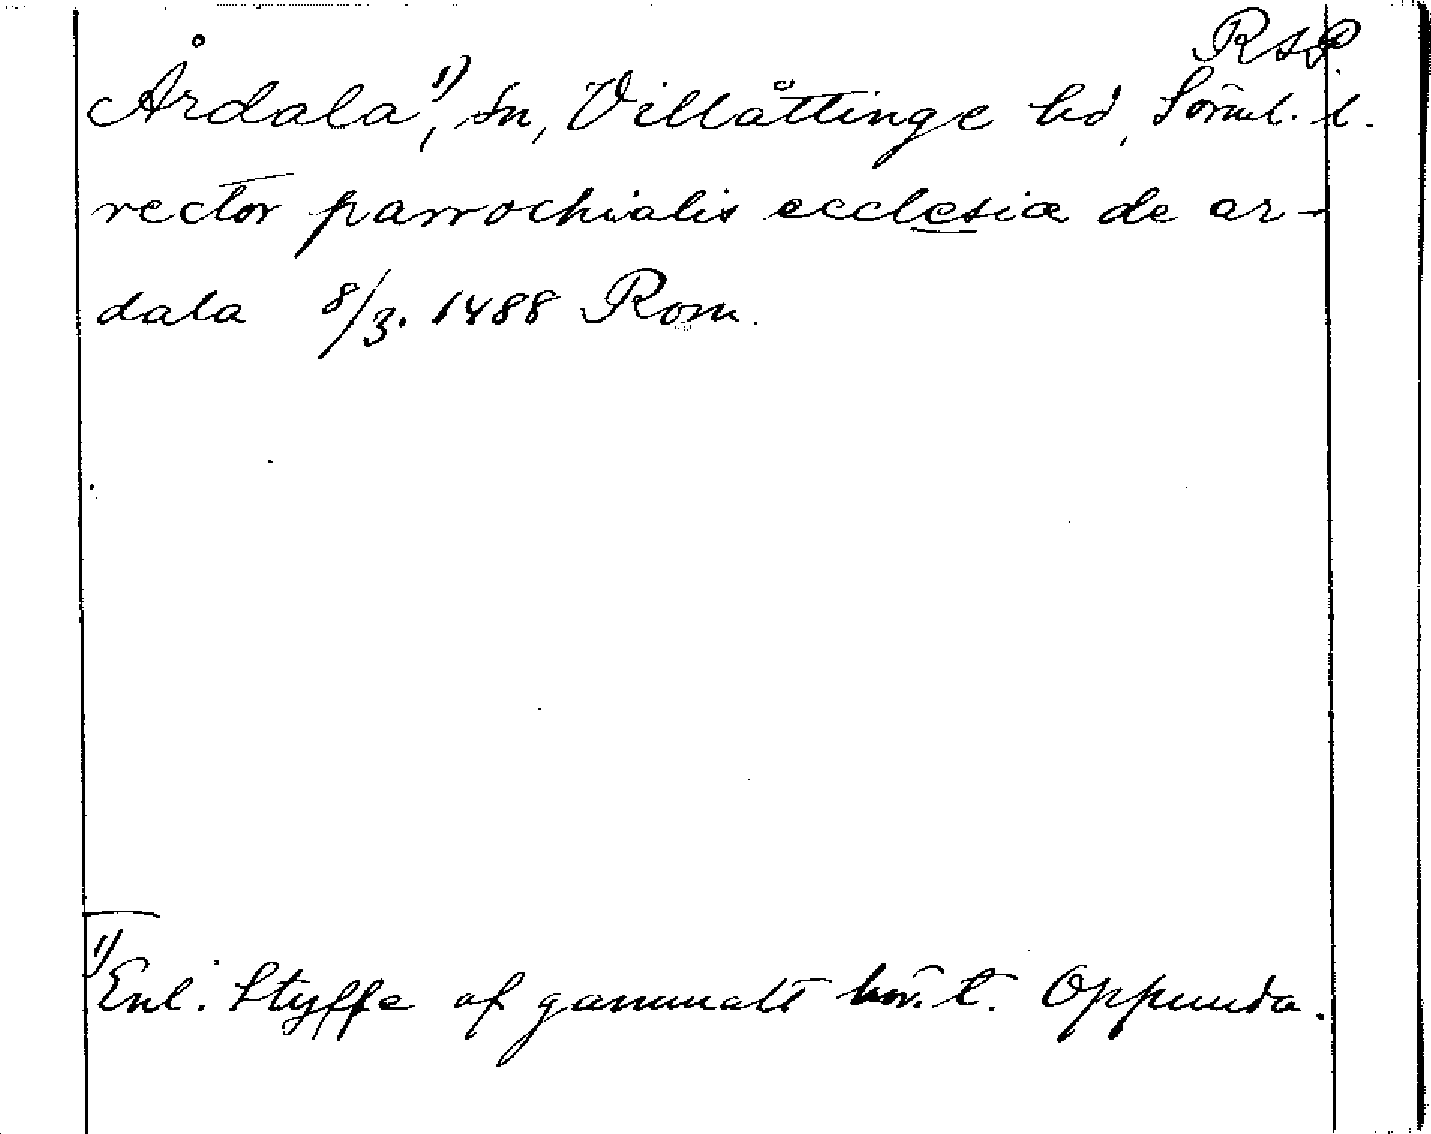 RAP.
Årdala,¹⁾ sn, Villåttinge hd, Sörml. l.
rector parrochialis ecclesiæ de ar-
dala 8/3. 1488 Rom.
¹⁾ Enl. Styffe af gammalt hör. t. Oppunda.